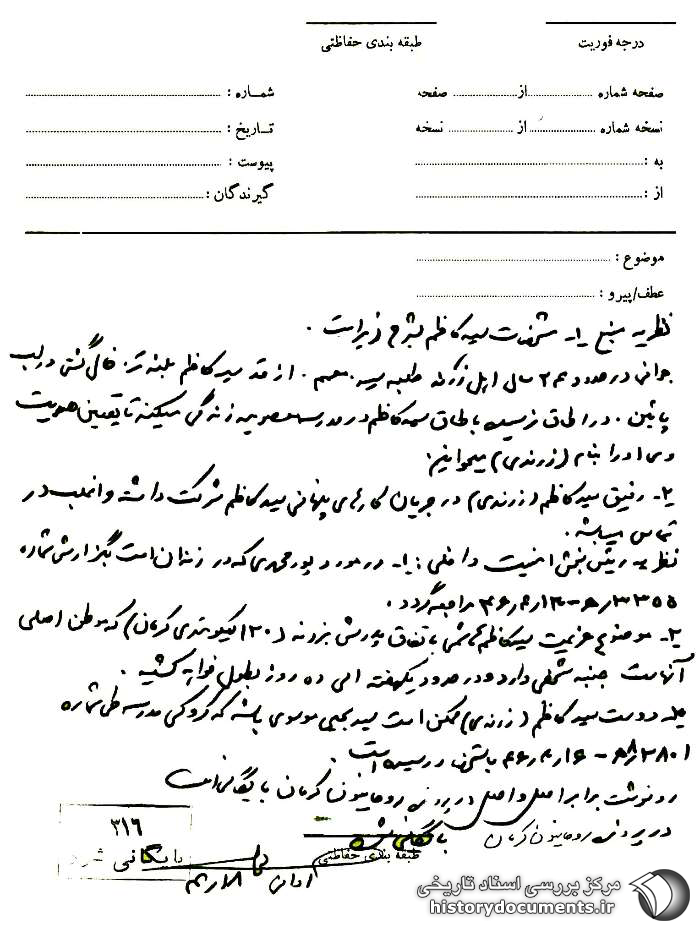 درجه فوریت
طبقه بندی حفاظتی
صفحه شماره ............ از ............ صفحه
شماره : ............
نسخه شماره ............ از ............ نسخه
تاریخ : ............
به : ............
پیوست : ............
از : ............
گیرندگان : ............
موضوع : ............
عطف/پیرو : ............
نظریه منبع ۱- مشخصات سید کاظم بشرح زیر است .
جوانی در حدود ۲۴ سال اهل زرند طلبه . از قد سید کاظم بلندتر خال گوشتی در لب
پائین . در اطاق نرسیده با طاق سید کاظم در مدرسه معصومیه زندگی میکند تا تعیین هویت
وی او را بنام (زرندی) میخوانیم.
۲- رفیق سید کاظم (زرندی) در جریان کارهای پنهانی سید کاظم شرکت داشته و اغلب در
تماس میباشد.
نظریه رئیس بخش امنیت داخلی : ۱- در مورد پورمحمدی که در زندان است بگزارش شماره
مراجعه گردد .
۲- موضوع عزیمت سید کاظم باتفاق پدرش بزرند (۱۲۰ کیلومتری کرمان) که موطن اصلی
آنهاست جنبه شخصی دارد و در حدود یکهفته الی ده روز بطول خواهد کشید .
دوست سید کاظم (زرندی) ممکن است سید یحیی موسوی باشد که کروکی مدرسه طی شماره
رسیده است .
رونوشت برابر اصل و اصل در پرونده روحانیون کرمان بایگانی است
در پرونده روحانیون کرمان بایگانی شد
طبقه بندی حفاظتی
۳۱۶
بایگانی شد
مرکز بررسی اسناد تاریخی
historydocuments.ir